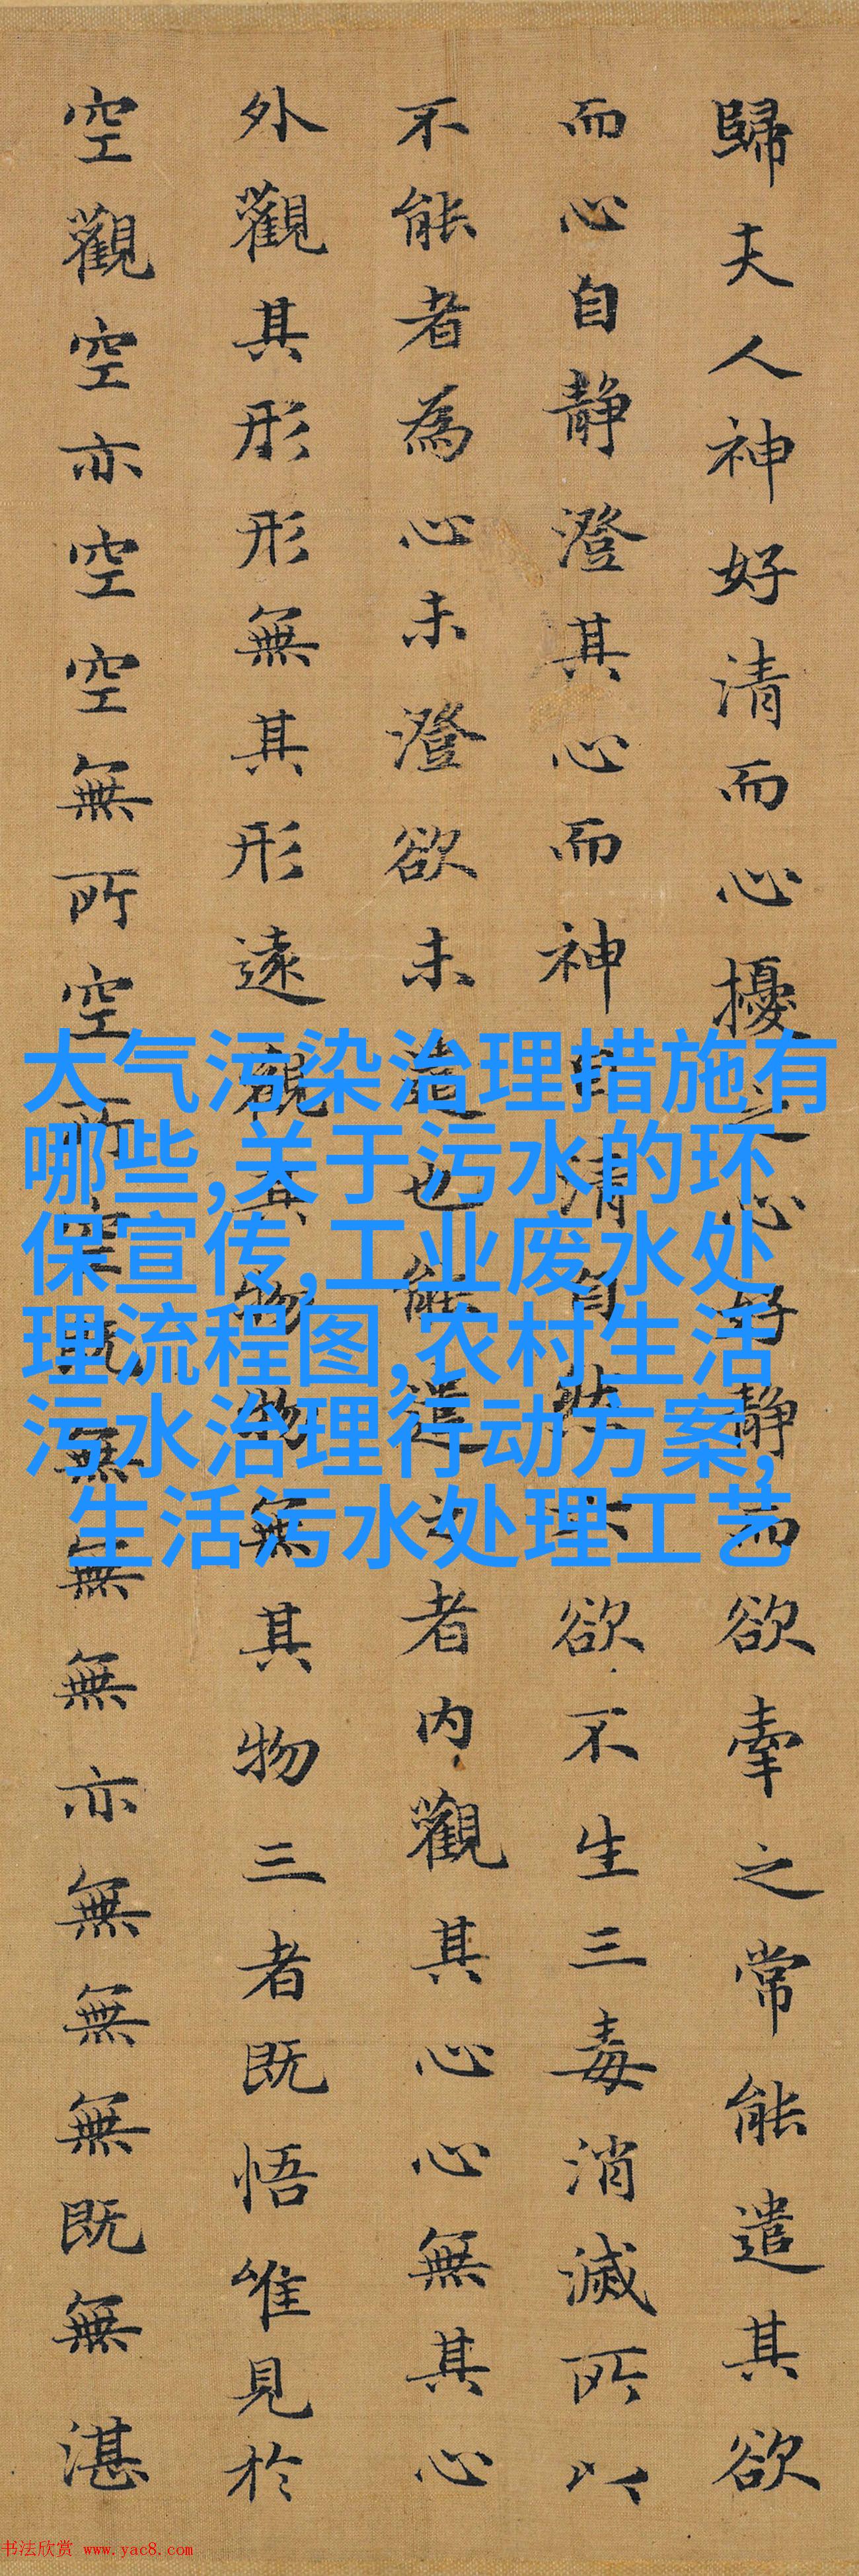 歸夫人神好清而心擾之心好静而欲牽之常能遣其欲
而心自静澄其心而神自清自然六欲不生三毒消滅所以
不能者為心未澄欲未遣也能遣之者内觀其心心無其心
外觀其形形無其形遠觀其物物無其物三者既悟唯見於
空觀空亦空空無所空所空既無無無亦無無無既無湛
大气污染治理措施有
哪些,关于污水的环
保宣传,工业废水处
理流程图,农村生活
污水治理行动方案,
生活污水处理工艺
书法欣赏 www.yac8.com